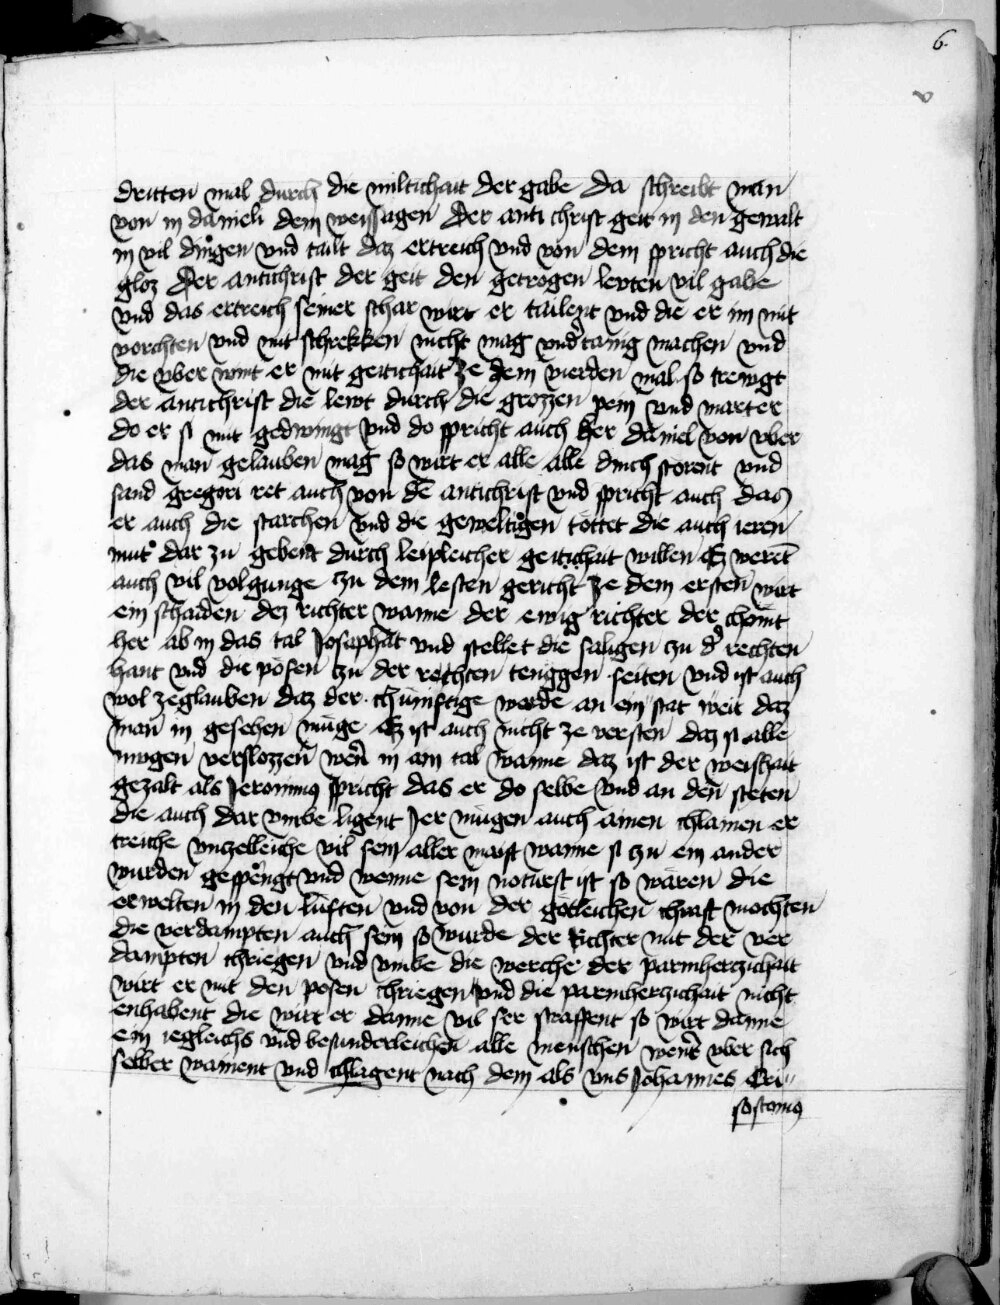 6
v
dritten mal durch die miltichait der gabe Da schreibt man
von in danieli dem weissagen Der anti christ geit in den gewalt
in vil dingen vnd tailt daz ertreich vnd von dem spricht auch die
gloz Der antichrist der geit den getrogen lewten vil gabe
vnd das ertreich seiner schar wirt er tailent vnd die er im mit
vorchten vnd mit schrekken nicht mag vndertanig machen vnd
die vber wint er mit geitichait Ze dem vierden mal so trewgt
der antichrist die lewt durch die grozzen pein vnd marter
do er si mit gedwingt vnd do spricht auch her daniel von vber
das man gelauben mag so wirt er alle alle dinch storent vnd
sand gregori ret auch von de antichrist vnd spricht auch das
er auch die starchen vnd die geweltigen tottet die auch ieren
mut dar zu gebent durch leipleicher geitichait willen Ez werent
auch vil volgunge zu dem lesten gericht Ze dem ersten wirt
ein schaiden dez richter wanne der ewig richter der chomt
her ab in das tal Josaphat vnd stellet die saligen zu der rechten
hant vnd die posen zu der rechten tenggen seiten vnd ist auch
wol zeglauben daz der chunftige werde an ein stat weit daz
man in gesehen muge Ez ist auch nicht ze versten daz si alle
mugen verslozzen wern in am tal wanne daz ist der weishait
gezalt als Jeronimus spricht das er do selbe vnd an den steten
die auch dar vmbe ligent Jer mugen auch ainen chlainen er
treiche vnzelleiche vil sein aller maist wanne si zu ein ander
wurden gesprengt vnd wenne sein noturft ist so waren die
erwelten in den luften vnd von der gotleichen chraft mochten
die verdampten auch sein so wurde der Richter mit der ver
dampten chriegen vnd vmbe die werche der parmherczichait
wirt er mit den posen chriegen vnd die parmherczichait nicht
enhabent die wirt er danne vil ser straffent so wirt danne
ein iegleichs vnd besunderleichen alle menschen wert vber sich
selber wainent vnd chlagent nach dem als vns Johannes Cri
sostomus